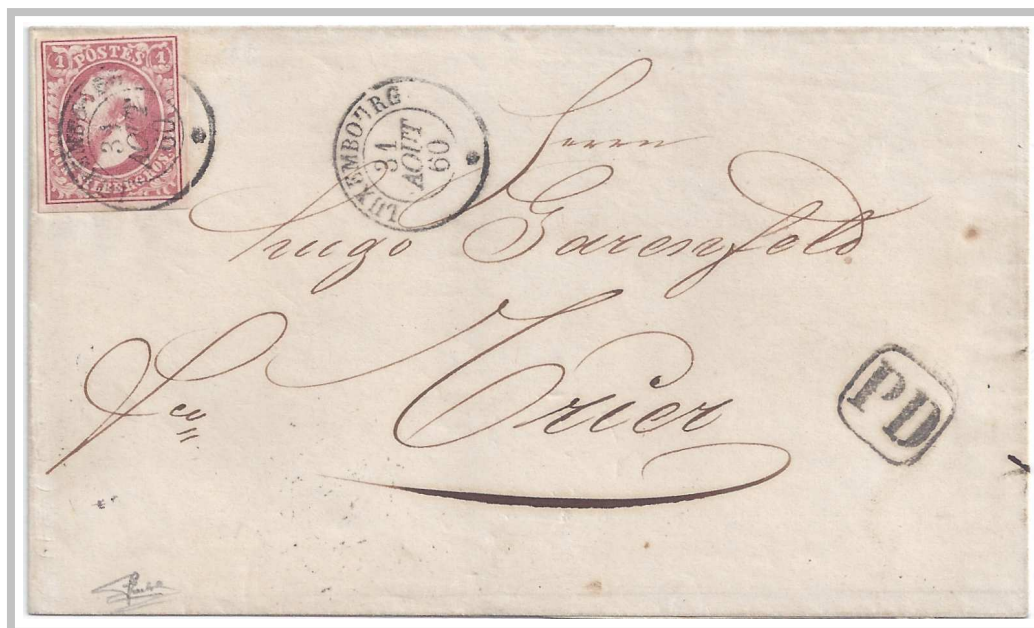 1 POSTES 1
UN SILBERGROS
LUXEMBOURG
31
AOUT
60
LUXEMBOURG
31
AOUT
60
Herrn
Hugo Garenfeld
fco
Trier
PD